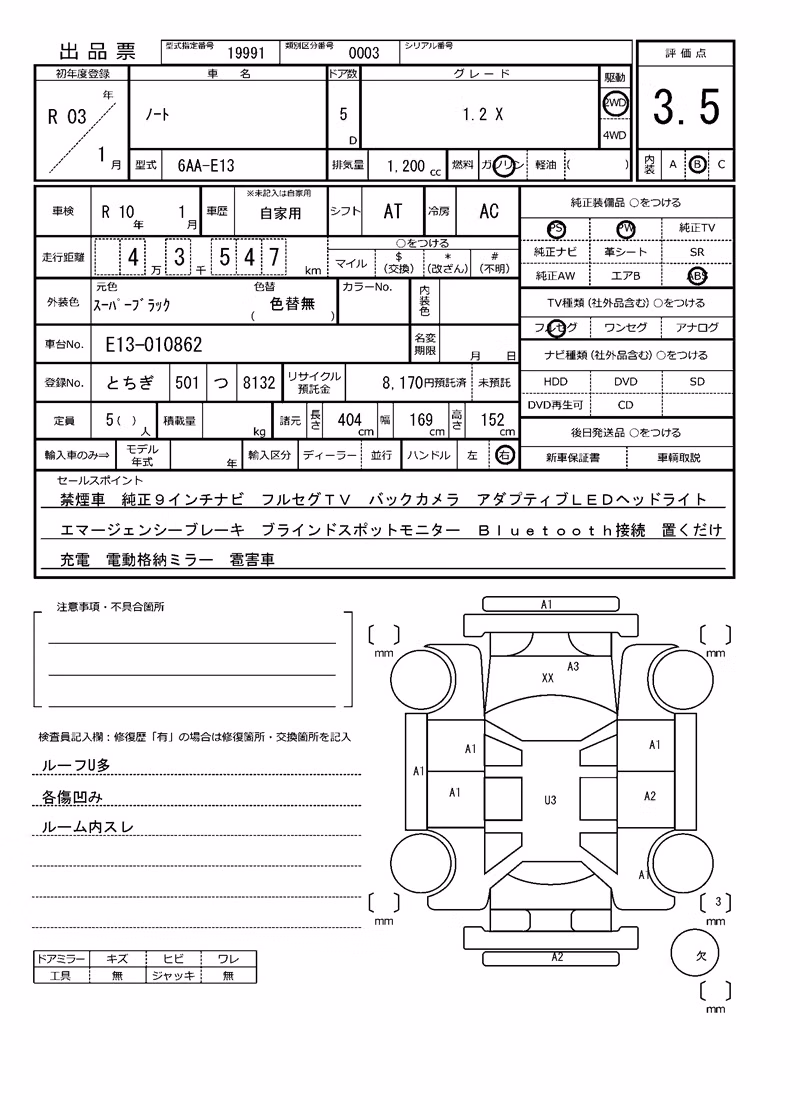 出品票 型式指定番号 19991 類別区分番号 0003 シリアル番号
初年度登録 車名 ドア数 グレード 駆動 評価点
R 03 年 1 月 ノート 5 D 1.2 X 2WD 4WD 3.5
型式 6AA-E13 排気量 1,200 cc 燃料 ガソリン 軽油 ( ) 内装 A B C
車検 R 10 年 1 月 車歴 ※未記入は自家用 自家用 シフト AT 冷房 AC
純正装備品 ○をつける
PS PW 純正TV
純正ナビ 革シート SR
純正AW エアB ABS
走行距離 4 万 3 千 5 4 7 km ○をつける
マイル $ (交換) * (改ざん) # (不明)
TV種類(社外品含む) ○をつける
フルセグ ワンセグ アナログ
外装色 元色 スーパーブラック 色替 ( 色替無 ) カラーNo. 内装色
車台No. E13-010862 名変期限 月 日
ナビ種類(社外品含む) ○をつける
HDD DVD SD
DVD再生可 CD
登録No. とちぎ 501 つ 8132 リサイクル預託金 8,170 円預託済 未預託
定員 5 ( ) 人 積載量 kg 諸元 長さ 404 cm 幅 169 cm 高さ 152 cm
後日発送品 ○をつける
新車保証書 車輌取説
輸入車のみ⇒ モデル年式 年 輸入区分 ディーラー 並行 ハンドル 左 右
セールスポイント
禁煙車 純正9インチナビ フルセグTV バックカメラ アダプティブLEDヘッドライト
エマージェンシーブレーキ ブラインドスポットモニター Bluetooth接続 置くだけ
充電 電動格納ミラー 雹害車
注意事項・不具合箇所
検査員記入欄：修復歴「有」の場合は修復箇所・交換箇所を記入
ルーフU多
各傷凹み
ルーム内スレ
ドアミラー キズ ヒビ ワレ
工具 無 ジャッキ 無
A1
mm mm
A3
XX
A1 A1
A1
A1 U3 A2
A1
3
mm mm
A2
欠
mm